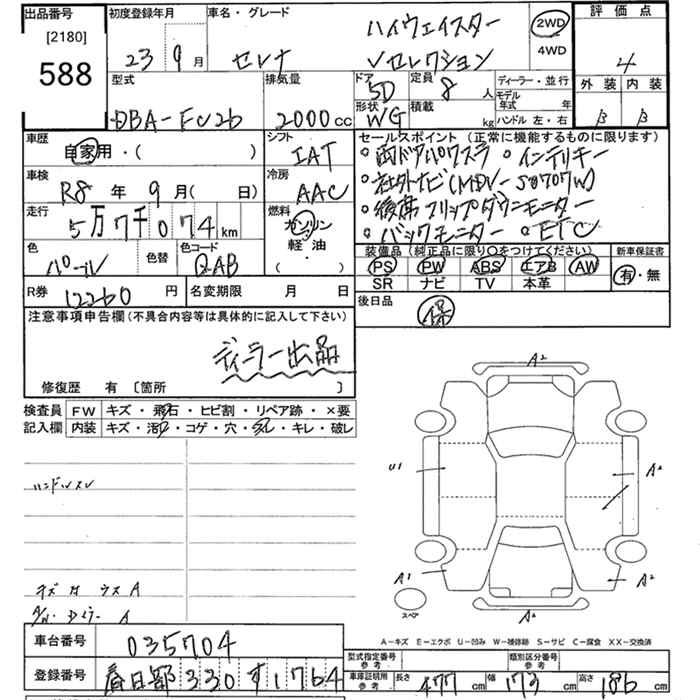 出品番号 初度登録年月 車名・グレード 評価点
[2180] ハイウェイスター 2WD
588 23 9月 セレナ Vセレクション 4WD 4
型式 排気量 ドア 5D 定員 8人 ディーラー・並行 外装 内装
DBA-FC26 2000cc 形状 WG 積載 kg モデル年式 年 ハンドル 左・右 B B
車歴 シフト セールスポイント (正常に機能するものに限ります)
自家用・( ) IAT 両ドアパワスラ インテリキー
車検 R8年 9月( 日) 冷房 AAC 社外ナビ(MDV-S8707W)
走行 5万7千074km 燃料 ガソリン 後席フリップダウンモニター
軽・油 バックモニター ETC
色 パープル 色替 色コード ( ) 装備品 (純正品に限り○をつけてください) 新車保証書
PS PW ABS エアB AW 有・無
SR ナビ TV 本革
R券 12260円 名変期限 月 日 後日品 保
注意事項申告欄(不具合内容等は具体的に記入して下さい)
ディーラー出品
修復歴 有 〔箇所 〕
検査員 FW キズ・飛石・ヒビ割・リペア跡・×要
記入欄 内装 キズ・汚レ・コゲ・穴・スレ・キレ・破レ
A2
U1 A2
ハンドルスレ
A1 A2
スペア
A2
A-キズ E-エクボ U-凹み W-補修跡 S-サビ C-腐食 XX-交換済
車台番号 035704 型式指定番号 参考 類別区分番号 参考
登録番号 春日部 330 す 1764 車庫証明用 参考 長さ 477cm 幅 173cm 高さ 186cm